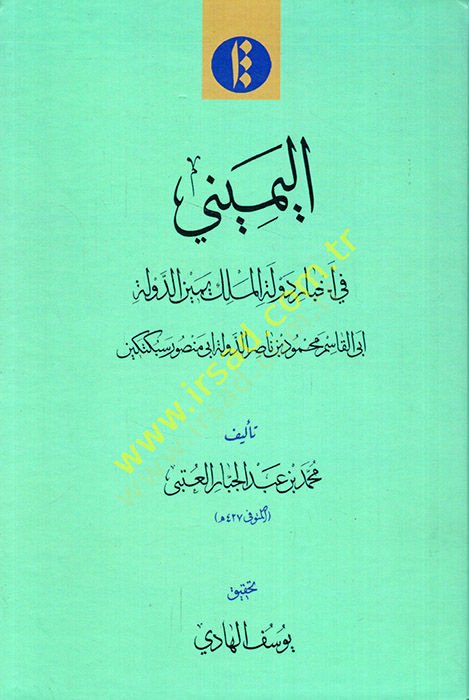 اليَمِيني
في أخبار دولة الملك يمين الدولة
أبي القاسم محمود بن ناصر الدولة أبي منصور سبكتكين
تأليف
محمد بن عبد الجبار العتبي
(المتوفى ٤٢٧ هـ)
تحقيق
يوسف الهادي
www.irsad.com.tr